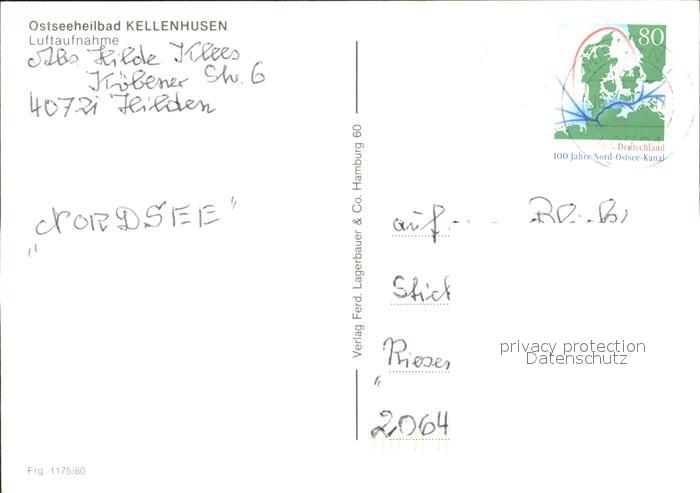 Ostseeheilbad KELLENHUSEN
Luftaufnahme
Abs. Hilde Klees
Str. 6
40721 Hilden
"NORDSEE"
Verlag Ferd. Lagerbauer & Co. Hamburg 60
80
Deutschland
100 Jahre Nord-Ostsee-Kanal
auf
Stick
Riesen
"
2064
privacy protection
Datenschutz
Frg. 1175/80